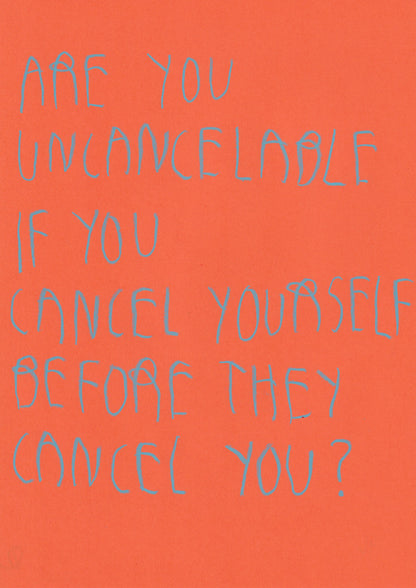 ARE YOU
UNCANCELABLE
IF YOU
CANCEL YOURSELF
BEFORE THEY
CANCEL YOU?